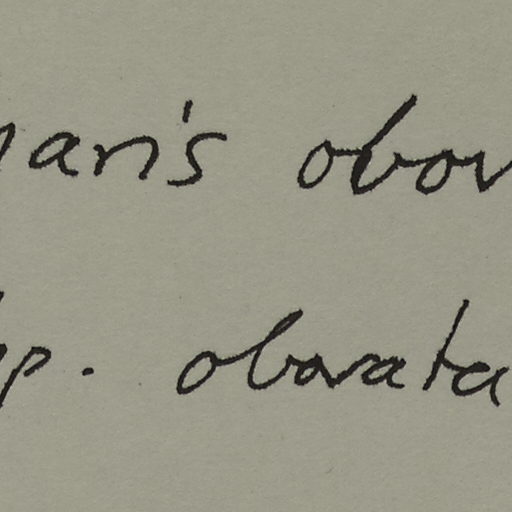 naris obov
sp. obovata